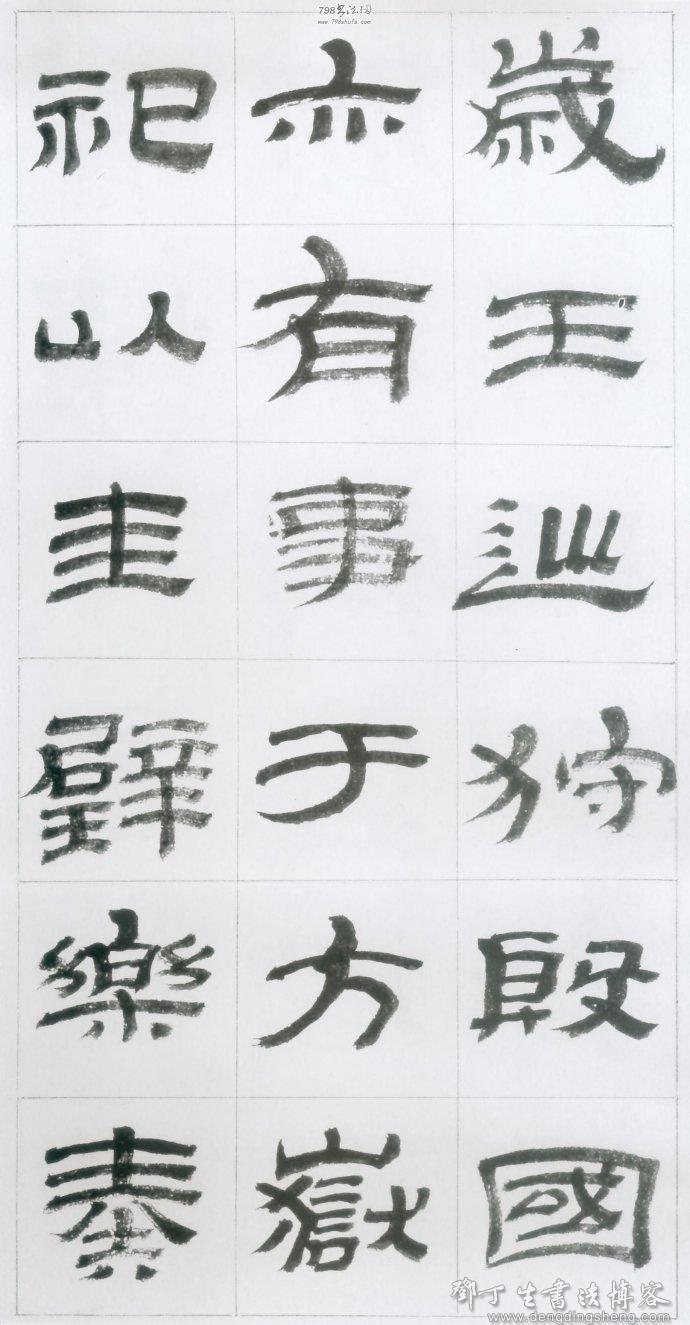 798书法网
www.798shufa.com
歲王巡狩殷國
亦有事于方嶽
祀以圭璧樂奏
鄧丁生書法博客
www.dengdingsheng.com